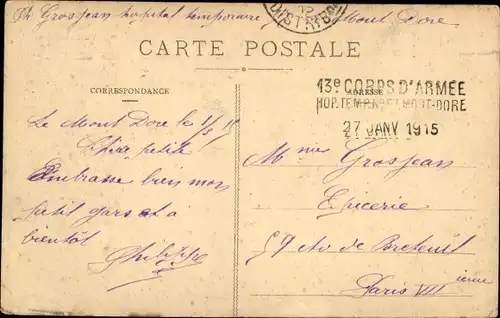 Ph Grosjean hopital temporaire Mont Dore
CARTE POSTALE
CORRESPONDANCE
ADRESSE
13e CORPS D'ARMÉE
HOP. TEMP. MONT-DORE
27 JANV 1915
Le Mont Dore le 1/2 15
Chère petite
Embrasse bien mon
petit gars et a
bientôt
Philippe
Mme Grosjean
Epicerie
59 av de Breteuil
Paris VII ieme